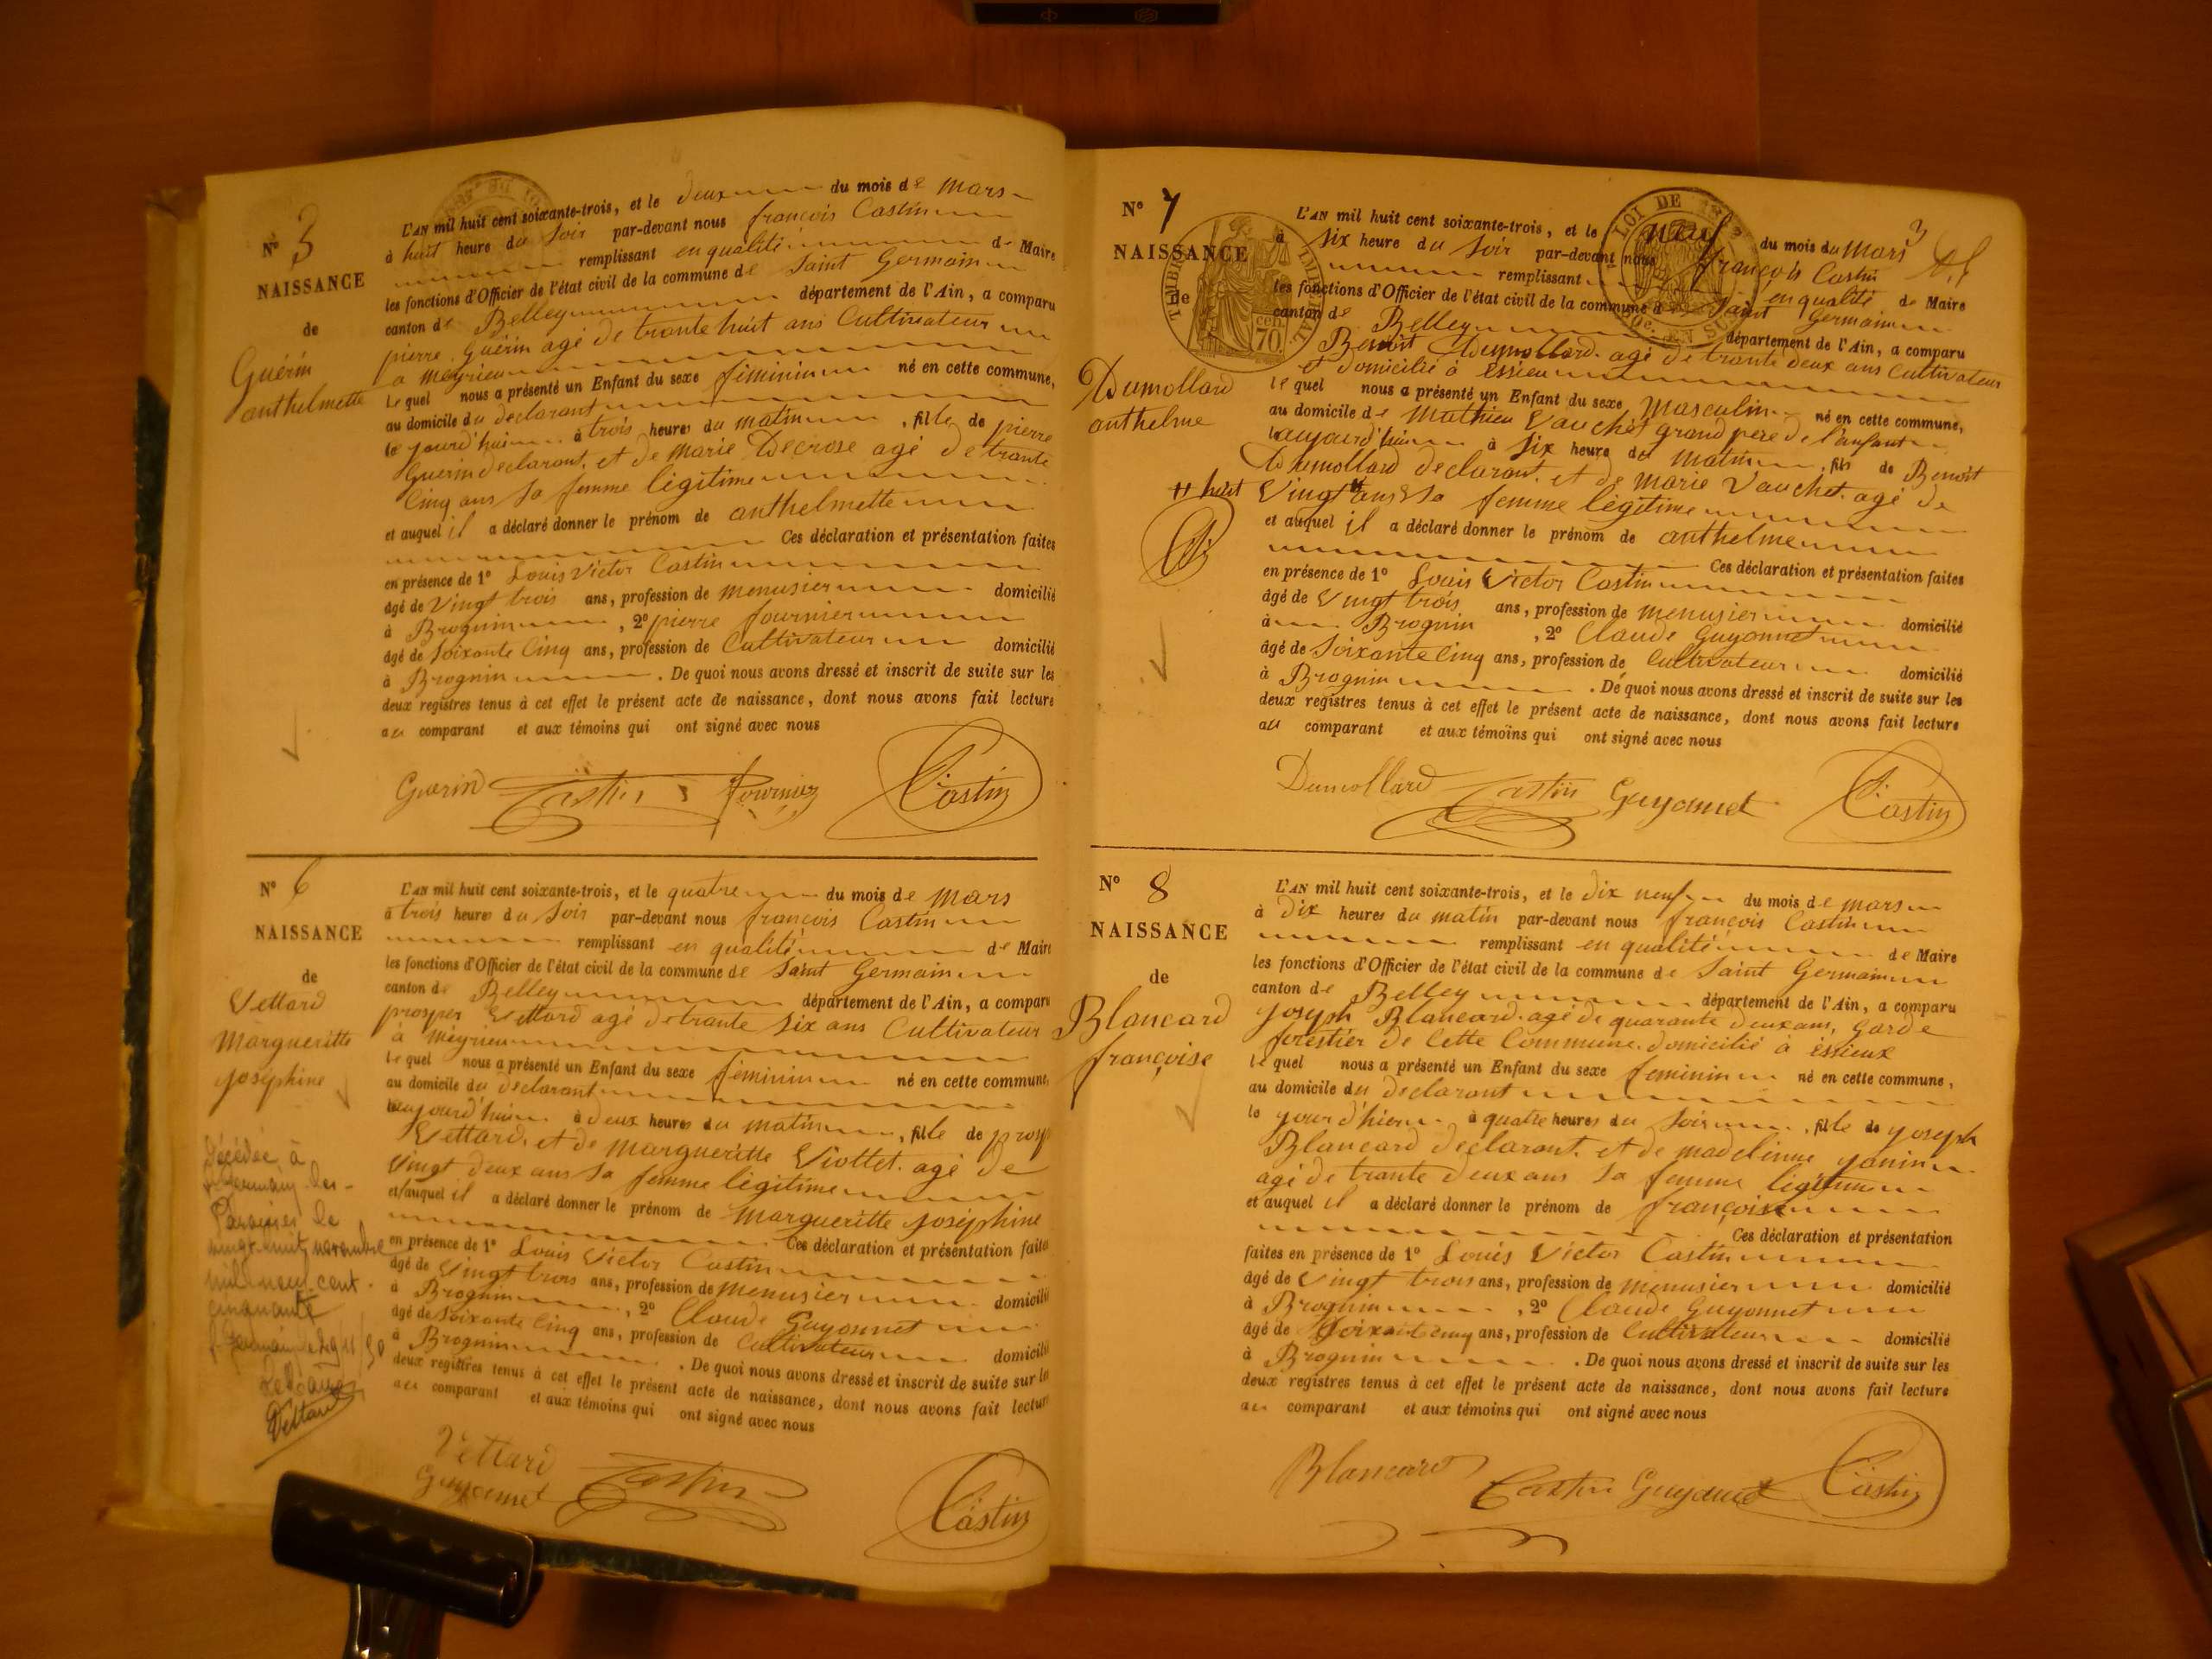 N° 5
NAISSANCE
de
Guérin
anthelmette
L'AN mil huit cent soixante-trois, et le deux du mois de mars
à huit heure du soir par-devant nous françois Castin
remplissant en qualité de Maire
les fonctions d'Officier de l'état civil de la commune de Saint Germain
canton de Belley département de l'Ain, a comparu
pierre Guérin agé de trante huit ans Cultivateur
a meyrieu
Le quel nous a présenté un Enfant du sexe féminin né en cette commune,
au domicile du declarant
le jourd'hui à trois heures du matin , fille de pierre
Guerin declarant, et de marie Decrose agé de trante
Cinq ans sa femme légitime
et auquel il a déclaré donner le prénom de anthelmette
Ces déclaration et présentation faites
en présence de 1° Louis Victor Castin
âgé de Vingt trois ans, profession de menusier domicilié
à Brognin , 2° pierre fournier
âgé de Soixante Cinq ans, profession de Cultivateur domicilié
à Brognin . De quoi nous avons dressé et inscrit de suite sur les
deux registres tenus à cet effet le présent acte de naissance, dont nous avons fait lecture
au comparant et aux témoins qui ont signé avec nous
Guerin Castin fournier Castin
N° 6
NAISSANCE
de
Vettard
Margueritte
joséphine
Décédée à
St Germain les
Paroisses le
vingt huit novembre
mil neuf cent
cinquante
Le Maire
Vettard
L'AN mil huit cent soixante-trois, et le quatre du mois de mars
à trois heures du soir par-devant nous françois Castin
remplissant en qualité de Maire
les fonctions d'Officier de l'état civil de la commune de Saint Germain
canton de Belley département de l'Ain, a comparu
prosper Vettard agé de trante six ans Cultivateur
à meyrieu
Le quel nous a présenté un Enfant du sexe feminin né en cette commune,
au domicile du declarant
aujourd'hui à deux heures du matin , fille de prosp
Vettard, et de margueritte Viottet agé de
Vingt deux ans sa femme légitime
et auquel il a déclaré donner le prénom de margueritte joséphine
Ces déclaration et présentation faites
en présence de 1° Louis Victor Castin
âgé de Vingt trois ans, profession de menusier domicilié
à Brognin , 2° Claude Guyonnet
âgé de Soixante Cinq ans, profession de Cultivateur domicilié
à Brognin . De quoi nous avons dressé et inscrit de suite sur les
deux registres tenus à cet effet le présent acte de naissance, dont nous avons fait lecture
au comparant et aux témoins qui ont signé avec nous
Vettard
Guyonnet Castin Castin
N° 7
NAISSANCE
de
Dumollard
anthelme
TIMBRE IMPERIAL
cen.
70
LOI DE
EN SUS
3
L'AN mil huit cent soixante-trois, et le neuf du mois du mars
à six heure du soir par-devant nous françois Castin
remplissant en qualité de Maire
les fonctions d'Officier de l'état civil de la commune de Saint Germain
canton de Belley département de l'Ain, a comparu
Benoit Dumollard agé de trante deux ans Cultivateur
et domicilié à Essieu
le quel nous a présenté un Enfant du sexe masculin né en cette commune,
au domicile de mathieu Vauchet grand père de l'anfant
aujourd'hui à six heure du matin , fils de Benoit
Dumollard declarant, et de marie Vauchet agé de
" huit
Vingt " ans sa femme légitime
et auquel il a déclaré donner le prénom de anthelme
Ces déclaration et présentation faites
en présence de 1° Louis Victor Castin
âgé de Vingt trois ans, profession de menusier domicilié
à Brognin , 2° Claude Guyonnet
âgé de Soixante Cinq ans, profession de Cultivateur domicilié
à Brognin . De quoi nous avons dressé et inscrit de suite sur les
deux registres tenus à cet effet le présent acte de naissance, dont nous avons fait lecture
au comparant et aux témoins qui ont signé avec nous
Dumollard Castin Guyonnet Castin
N° 8
NAISSANCE
de
Blancard
françoise
L'AN mil huit cent soixante-trois, et le dix neuf du mois de mars
à dix heures du matin par-devant nous françois Castin
remplissant en qualité de Maire
les fonctions d'Officier de l'état civil de la commune de Saint Germain
canton de Belley département de l'Ain, a comparu
joseph Blancard agé de quarante deux ans, garde
forestier de Cette Commune domicilié à éssieux
le quel nous a présenté un Enfant du sexe feminin né en cette commune,
au domicile du declarant
le jour d'hier à quatre heures du soir , fille de joseph
Blancard declarant, et de madeleinne janin
agé de trante deux ans sa femme légitime
et auquel il a déclaré donner le prénom de françoise
Ces déclaration et présentation
faites en présence de 1° Louis Victor Castin
âgé de Vingt trois ans, profession de menusier domicilié
à Brognin , 2° Claude Guyonnet
âgé de Soixante cinq ans, profession de Cultivateur domicilié
à Brognin . De quoi nous avons dressé et inscrit de suite sur les
deux registres tenus à cet effet le présent acte de naissance, dont nous avons fait lecture
au comparant et aux témoins qui ont signé avec nous
Blancard Castin Guyonnet Castin